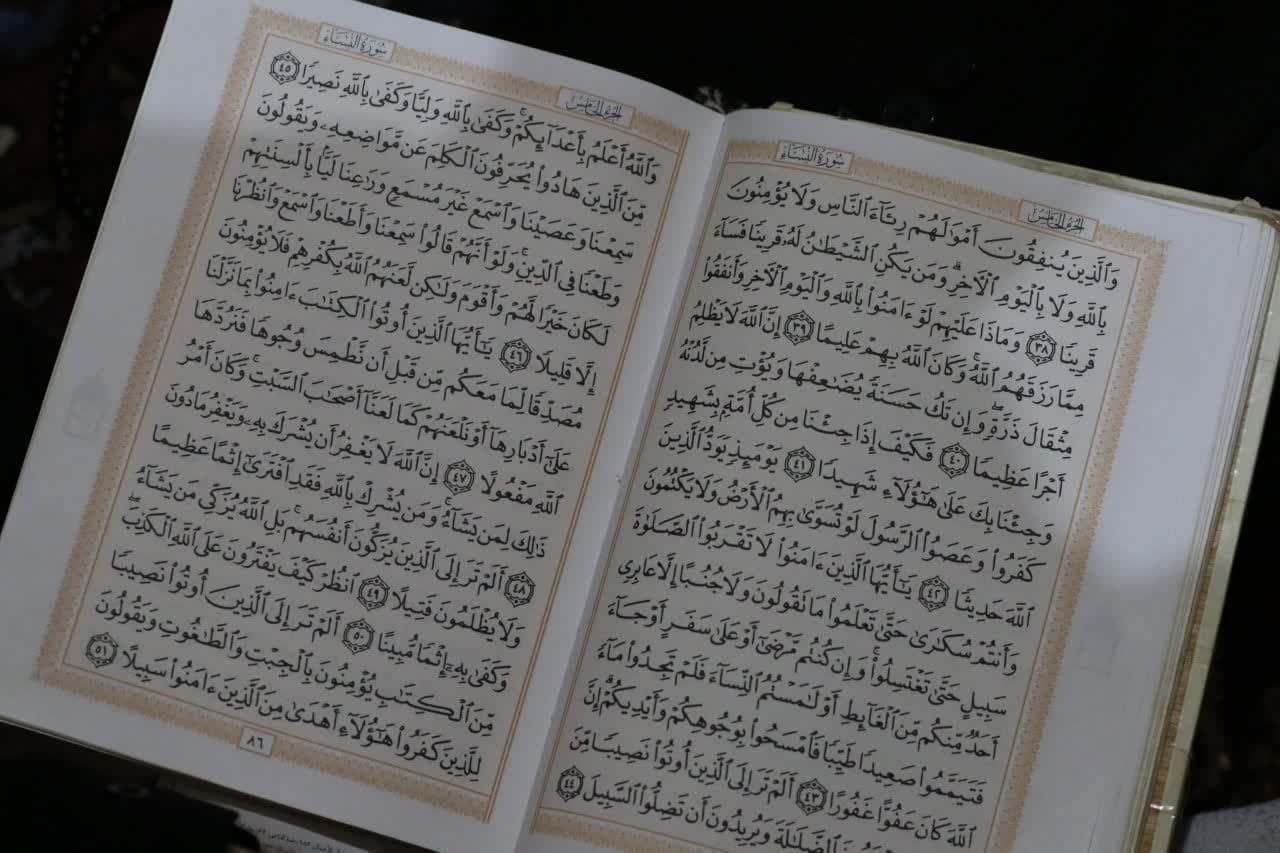 سُورَةُ النِّسَاءِ
الجُزْءُ الخَامِسُ
وَٱلَّذِينَ يُنفِقُونَ أَمْوَٰلَهُمْ رِئَآءَ ٱلنَّاسِ وَلَا يُؤْمِنُونَ
بِٱللَّهِ وَلَا بِٱلْيَوْمِ ٱلْءَاخِرِ ۗ وَمَن يَكُنِ ٱلشَّيْطَٰنُ لَهُۥ قَرِينًا فَسَآءَ
قَرِينًا ٣٨ وَمَاذَا عَلَيْهِمْ لَوْ ءَامَنُوا۟ بِٱللَّهِ وَٱلْيَوْمِ ٱلْءَاخِرِ وَأَنفَقُوا۟
مِمَّا رَزَقَهُمُ ٱللَّهُ ۚ وَكَانَ ٱللَّهُ بِهِمْ عَلِيمًا ٣٩ إِنَّ ٱللَّهَ لَا يَظْلِمُ
مِثْقَالَ ذَرَّةٍ ۖ وَإِن تَكُ حَسَنَةً يُضَٰعِفْهَا وَيُؤْتِ مِن لَّدُنْهُ
أَجْرًا عَظِيمًا ٤٠ فَكَيْفَ إِذَا جِئْنَا مِن كُلِّ أُمَّةٍۭ بِشَهِيدٍ
وَجِئْنَا بِكَ عَلَىٰ هَٰٓؤُلَآءِ شَهِيدًا ٤١ يَوْمَئِذٍ يَوَدُّ ٱلَّذِينَ
كَفَرُوا۟ وَعَصَوُا۟ ٱلرَّسُولَ لَوْ تُسَوَّىٰ بِهِمُ ٱلْأَرْضُ وَلَا يَكْتُمُونَ
ٱللَّهَ حَدِيثًا ٤٢ يَٰٓأَيُّهَا ٱلَّذِينَ ءَامَنُوا۟ لَا تَقْرَبُوا۟ ٱلصَّلَوٰةَ
وَأَنتُمْ سُكَٰرَىٰ حَتَّىٰ تَعْلَمُوا۟ مَا تَقُولُونَ وَلَا جُنُبًا إِلَّا عَابِرِى
سَبِيلٍ حَتَّىٰ تَغْتَسِلُوا۟ ۚ وَإِن كُنتُم مَّرْضَىٰٓ أَوْ عَلَىٰ سَفَرٍ أَوْ جَآءَ
أَحَدٌ مِّنكُم مِّنَ ٱلْغَآئِطِ أَوْ لَٰمَسْتُمُ ٱلنِّسَآءَ فَلَمْ تَجِدُوا۟ مَآءً
فَتَيَمَّمُوا۟ صَعِيدًا طَيِّبًا فَٱمْسَحُوا۟ بِوُجُوهِكُمْ وَأَيْدِيكُمْ ۗ إِنَّ
ٱللَّهَ كَانَ عَفُوًّا غَفُورًا ٤٣ أَلَمْ تَرَ إِلَى ٱلَّذِينَ أُوتُوا۟ نَصِيبًا مِّنَ
ٱلضَّلَٰلَةَ وَيُرِيدُونَ أَن تَضِلُّوا۟ ٱلسَّبِيلَ ٤٤
سُورَةُ النِّسَاءِ
الجُزْءُ الخَامِسُ
وَٱللَّهُ أَعْلَمُ بِأَعْدَآئِكُمْ ۚ وَكَفَىٰ بِٱللَّهِ وَلِيًّا وَكَفَىٰ بِٱللَّهِ نَصِيرًا ٤٥
مِّنَ ٱلَّذِينَ هَادُوا۟ يُحَرِّفُونَ ٱلْكَلِمَ عَن مَّوَاضِعِهِۦ وَيَقُولُونَ
سَمِعْنَا وَعَصَيْنَا وَٱسْمَعْ غَيْرَ مُسْمَعٍ وَرَٰعِنَا لَيًّۢا بِأَلْسِنَتِهِمْ
وَطَعْنًا فِى ٱلدِّينِ ۚ وَلَوْ أَنَّهُمْ قَالُوا۟ سَمِعْنَا وَأَطَعْنَا وَٱسْمَعْ وَٱنظُرْنَا
لَكَانَ خَيْرًا لَّهُمْ وَأَقْوَمَ وَلَٰكِن لَّعَنَهُمُ ٱللَّهُ بِكُفْرِهِمْ فَلَا يُؤْمِنُونَ
إِلَّا قَلِيلًا ٤٦ يَٰٓأَيُّهَا ٱلَّذِينَ أُوتُوا۟ ٱلْكِتَٰبَ ءَامِنُوا۟ بِمَا نَزَّلْنَا
مُصَدِّقًا لِّمَا مَعَكُم مِّن قَبْلِ أَن نَّطْمِسَ وُجُوهًا فَنَرُدَّهَا
عَلَىٰٓ أَدْبَارِهَآ أَوْ نَلْعَنَهُمْ كَمَا لَعَنَّآ أَصْحَٰبَ ٱلسَّبْتِ ۚ وَكَانَ أَمْرُ
ٱللَّهِ مَفْعُولًا ٤٧ إِنَّ ٱللَّهَ لَا يَغْفِرُ أَن يُشْرَكَ بِهِۦ وَيَغْفِرُ مَا دُونَ
ذَٰلِكَ لِمَن يَشَآءُ ۚ وَمَن يُشْرِكْ بِٱللَّهِ فَقَدِ ٱفْتَرَىٰٓ إِثْمًا عَظِيمًا
٤٨ أَلَمْ تَرَ إِلَى ٱلَّذِينَ يُزَكُّونَ أَنفُسَهُم ۚ بَلِ ٱللَّهُ يُزَكِّى مَن يَشَآءُ
وَلَا يُظْلَمُونَ فَتِيلًا ٤٩ ٱنظُرْ كَيْفَ يَفْتَرُونَ عَلَى ٱللَّهِ ٱلْكَذِبَ ۖ
وَكَفَىٰ بِهِۦٓ إِثْمًا مُّبِينًا ٥٠ أَلَمْ تَرَ إِلَى ٱلَّذِينَ أُوتُوا۟ نَصِيبًا
مِّنَ ٱلْكِتَٰبِ يُؤْمِنُونَ بِٱلْجِبْتِ وَٱلطَّٰغُوتِ وَيَقُولُونَ
لِلَّذِينَ كَفَرُوا۟ هَٰٓؤُلَآءِ أَهْدَىٰ مِنَ ٱلَّذِينَ ءَامَنُوا۟ سَبِيلًا ٥١
٨٦